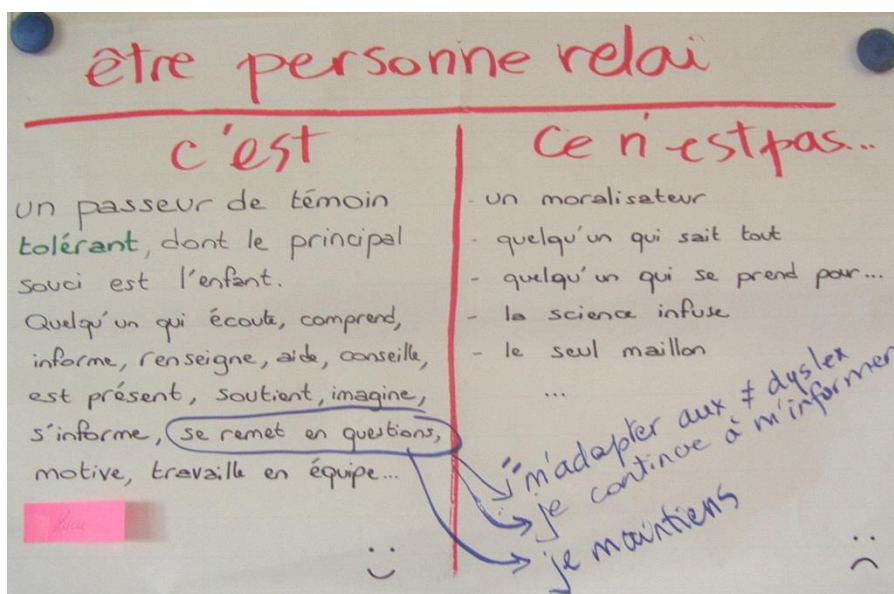 être personne relai
c'est
un passeur de témoin
tolérant, dont le principal
souci est l'enfant.
Quelqu'un qui écoute, comprend,
informe, renseigne, aide, conseille,
est présent, soutient, imagine,
s'informe, se remet en questions,
motive, travaille en équipe...
ce n'est pas...
- un moralisateur
- quelqu'un qui sait tout
- quelqu'un qui se prend pour...
- la science infuse
- le seul maillon
...
m'adapter aux ≠ dyslex
je continue à m'informer
je maintiens